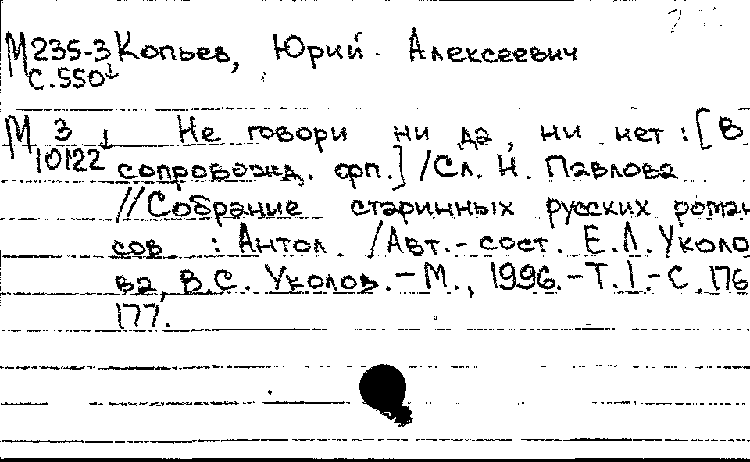 М235-3 Копьев, Юрий Алексеевич
С.550↓
М 3 ↓ Не говори ни да, ни нет : [В
10122 сопровожд. фп.] / Сл. Н. Павлова
// Собрание старинных русских роман
сов : Антол. / Авт.-сост. Е.Л. Уколо
ва, В.С. Уколов. – М., 1996. – Т.1. – С.176
177.